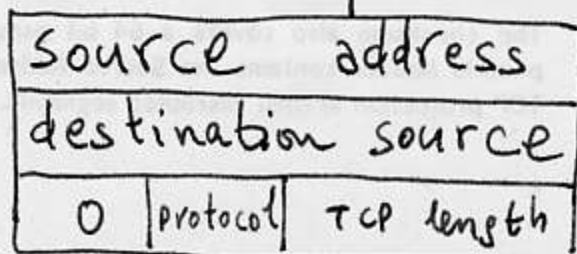 source address
destination source
0 protocol TCP length